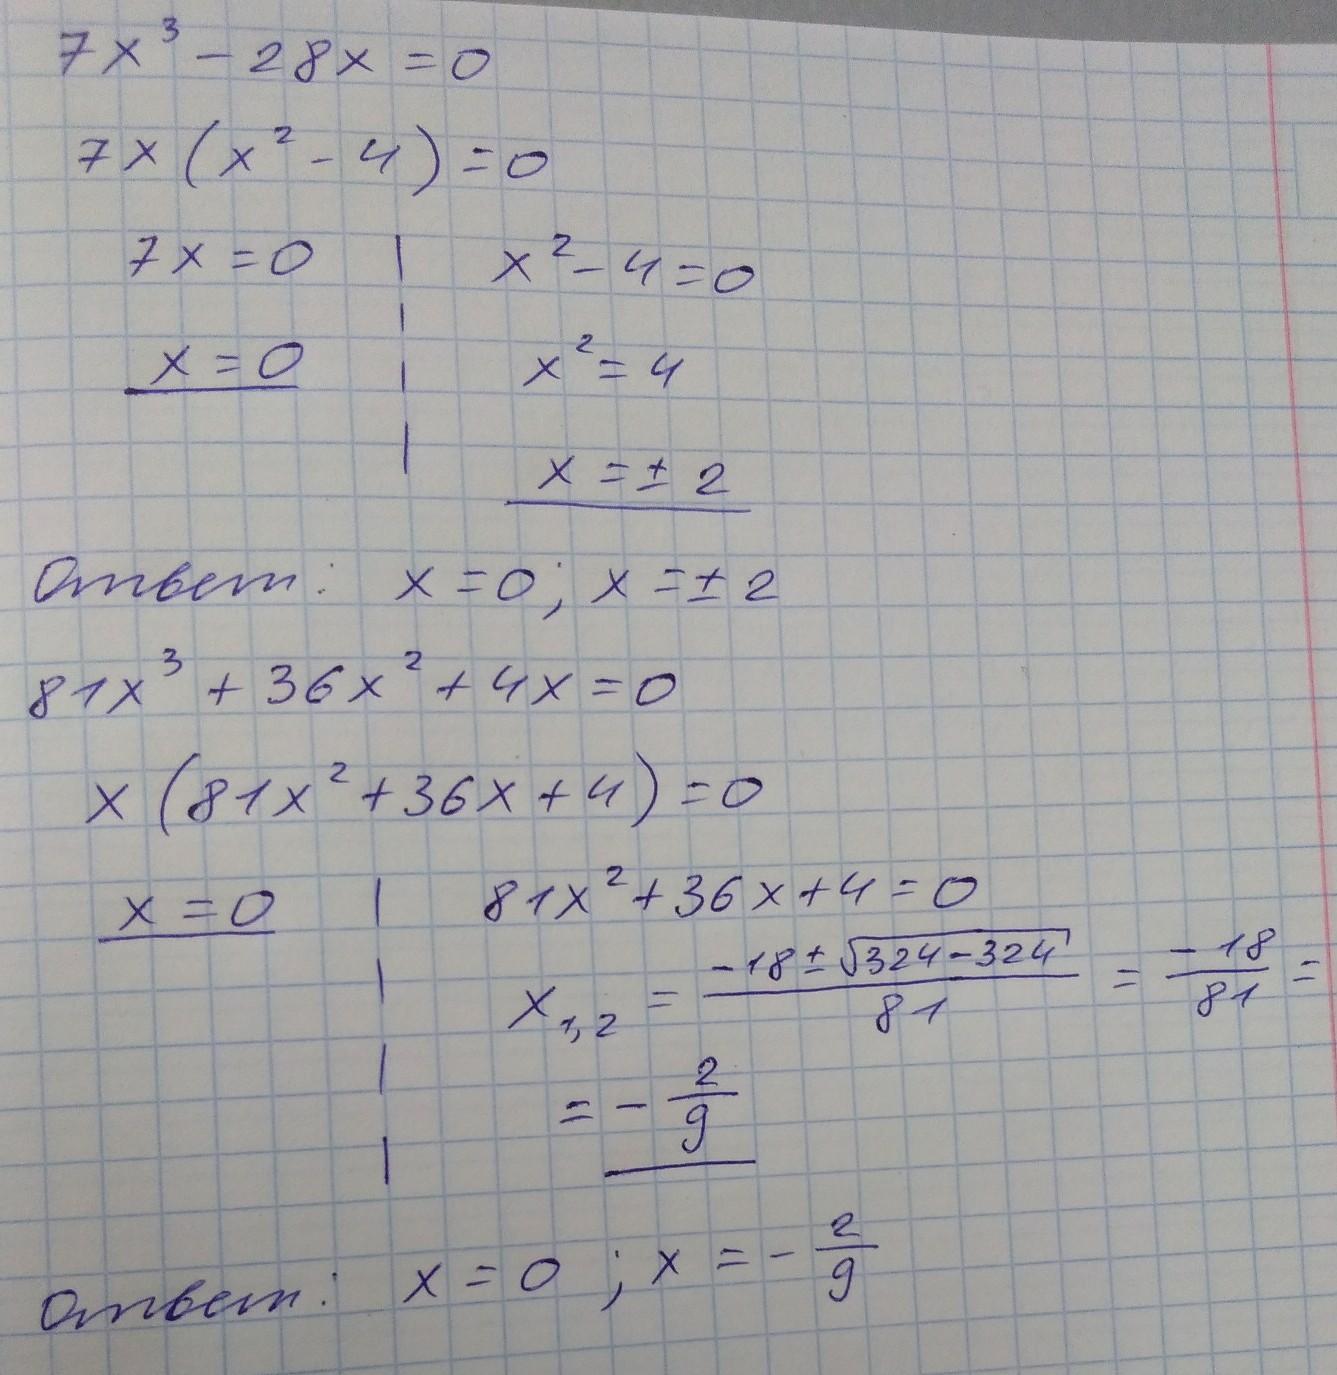 7x³ - 28x = 0
7x(x² - 4) = 0
7x = 0 | x² - 4 = 0
x = 0 | x² = 4
x = ± 2
Ответ: x = 0; x = ± 2
81x³ + 36x² + 4x = 0
x(81x² + 36x + 4) = 0
x = 0 | 81x² + 36x + 4 = 0
x₁,₂ = (-18 ± √(324 - 324))/81 = -18/81 =
= - 2/9
Ответ: x = 0 ; x = - 2/9